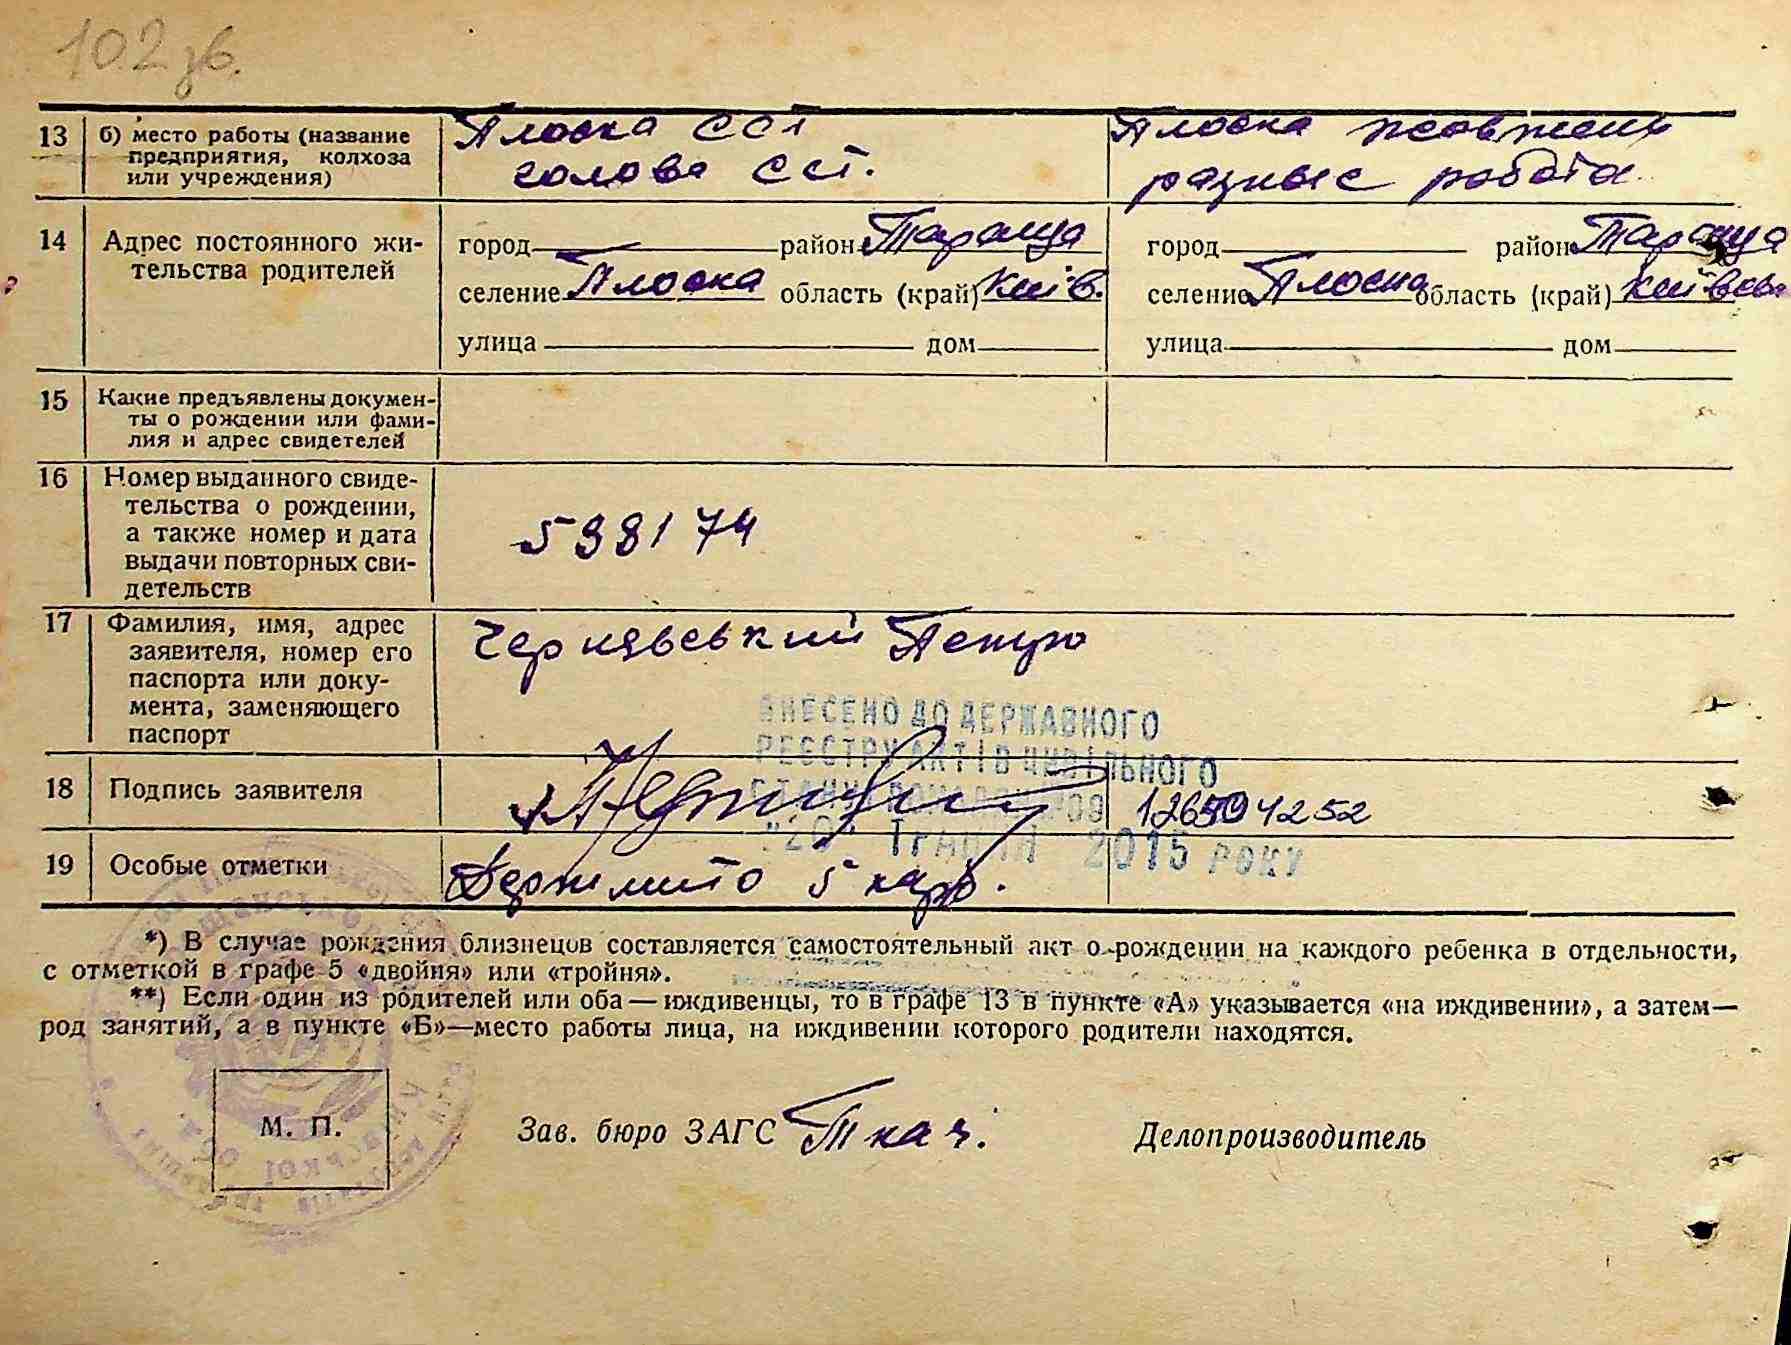 102 зв.
13 б) место работы (название предприятия, колхоза или учреждения)
Плоска ССТ
голова ССТ.
Плоска
разные работа
14 Адрес постоянного жи-
тельства родителей
город район Тараща
селение Плоска область (край) Київ.
улица дом
город район Тараща
селение Плоска область (край) Київсь
улица дом
15 Какие предъявлены докумен-
ты о рождении или фами-
лия и адрес свидетелей
16 Номер выданного свиде-
тельства о рождении,
а также номер и дата
выдачи повторных сви-
детельств
598174
17 Фамилия, имя, адрес
заявителя, номер его
паспорта или доку-
мента, заменяющего
паспорт
Чернявський Петро
ВНЕСЕНО ДО ДЕРЖАВНОГО
РЕЄСТРУ АКТІВ ЦИВІЛЬНОГО
СТАНУ ГРОМАДЯН 009
"20" Травня 2015 РОКУ
18 Подпись заявителя
19 Особые отметки
Держмито 5 карб.
*) В случае рождения близнецов составляется самостоятельный акт о рождении на каждого ребенка в отдельности,
с отметкой в графе 5 «двойня» или «тройня».
**) Если один из родителей или оба — иждивенцы, то в графе 13 в пункте «А» указывается «на иждивении», а затем—
род занятий, а в пункте «Б»—место работы лица, на иждивении которого родители находятся.
М. П.
Зав. бюро ЗАГС Ткач.
Делопроизводитель